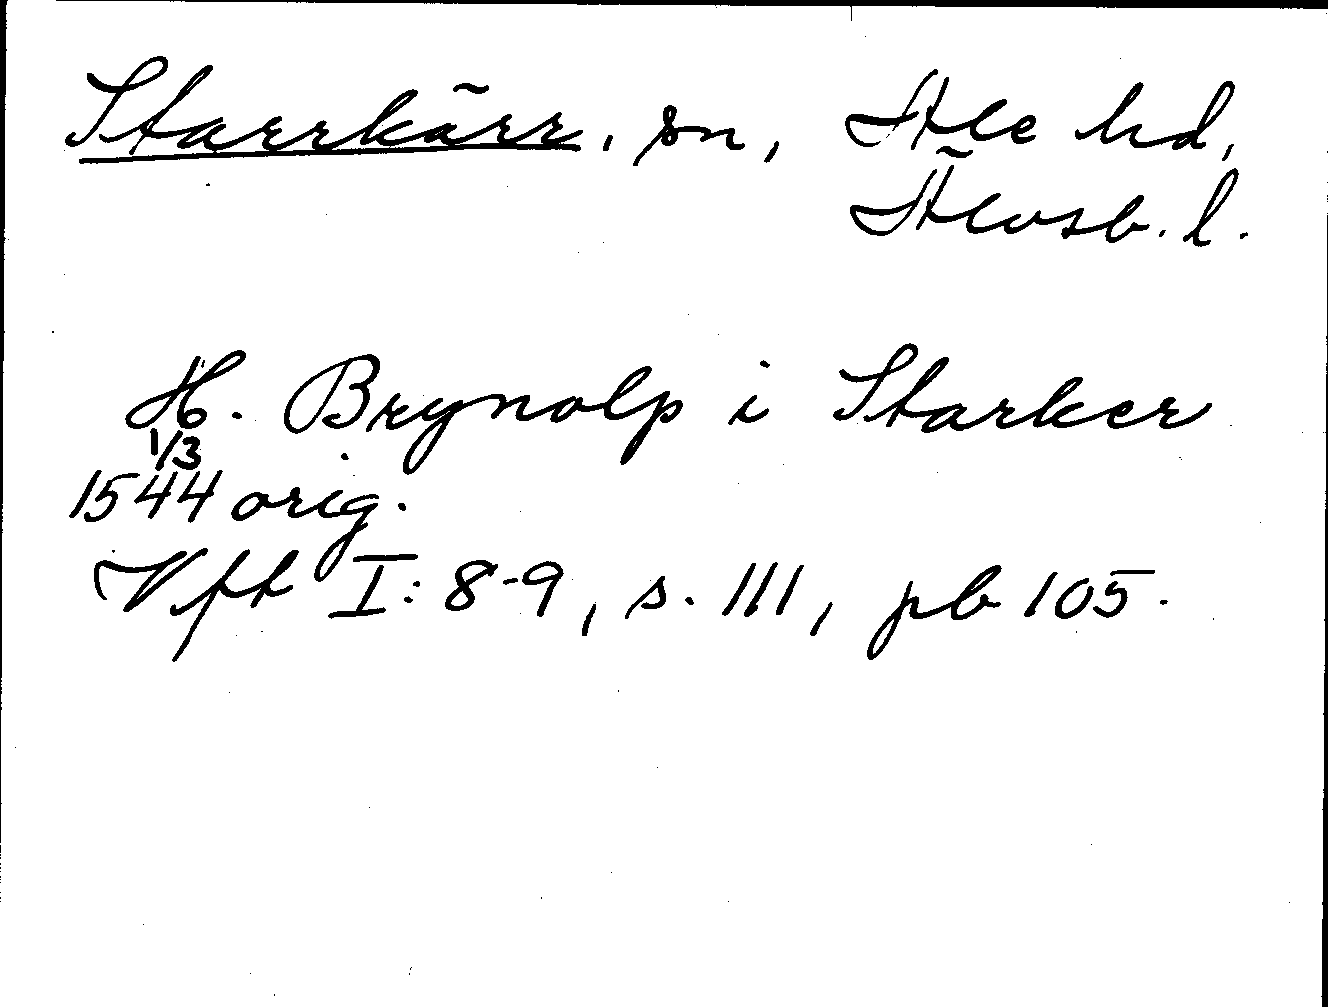 Starrkärr, sn, Ale hd,
Älvsb. l.
H. Brynolp i Starker
1/3
1544 orig.
Vft I: 8-9, s. 111, pb 105.